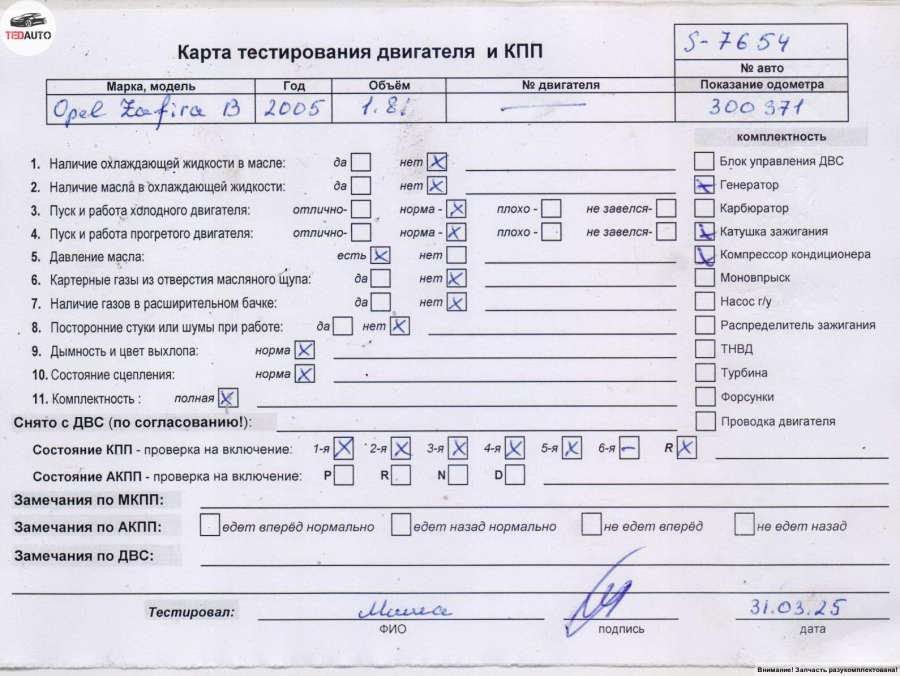 TEDAUTO
Карта тестирования двигателя и КПП
S-7654
№ авто
Марка, модель Год Объём № двигателя Показание одометра
Opel Zafira B 2005 1.8i — 300 371
комплектность
1. Наличие охлаждающей жидкости в масле: да нет X
Блок управления ДВС
2. Наличие масла в охлаждающей жидкости: да нет X
Генератор
3. Пуск и работа холодного двигателя: отлично- норма - X плохо - не завелся-
Карбюратор
4. Пуск и работа прогретого двигателя: отлично- норма - X плохо - не завелся-
Катушка зажигания
5. Давление масла: есть X нет
Компрессор кондиционера
6. Картерные газы из отверстия масляного щупа: да нет X
Моновпрыск
7. Наличие газов в расширительном бачке: да нет X
Насос г/у
8. Посторонние стуки или шумы при работе: да нет X
Распределитель зажигания
9. Дымность и цвет выхлопа: норма X
ТНВД
10. Состояние сцепления: норма X
Турбина
11. Комплектность : полная X
Форсунки
Снято с ДВС (по согласованию!):
Проводка двигателя
Состояние КПП - проверка на включение: 1-я X 2-я X 3-я X 4-я X 5-я X 6-я — R X
Состояние АКПП - проверка на включение: P R N D
Замечания по МКПП:
Замечания по АКПП: едет вперёд нормально едет назад нормально не едет вперёд не едет назад
Замечания по ДВС:
Тестировал: 31.03.25
ФИО подпись дата
Внимание! Запчасть разукомплектована!